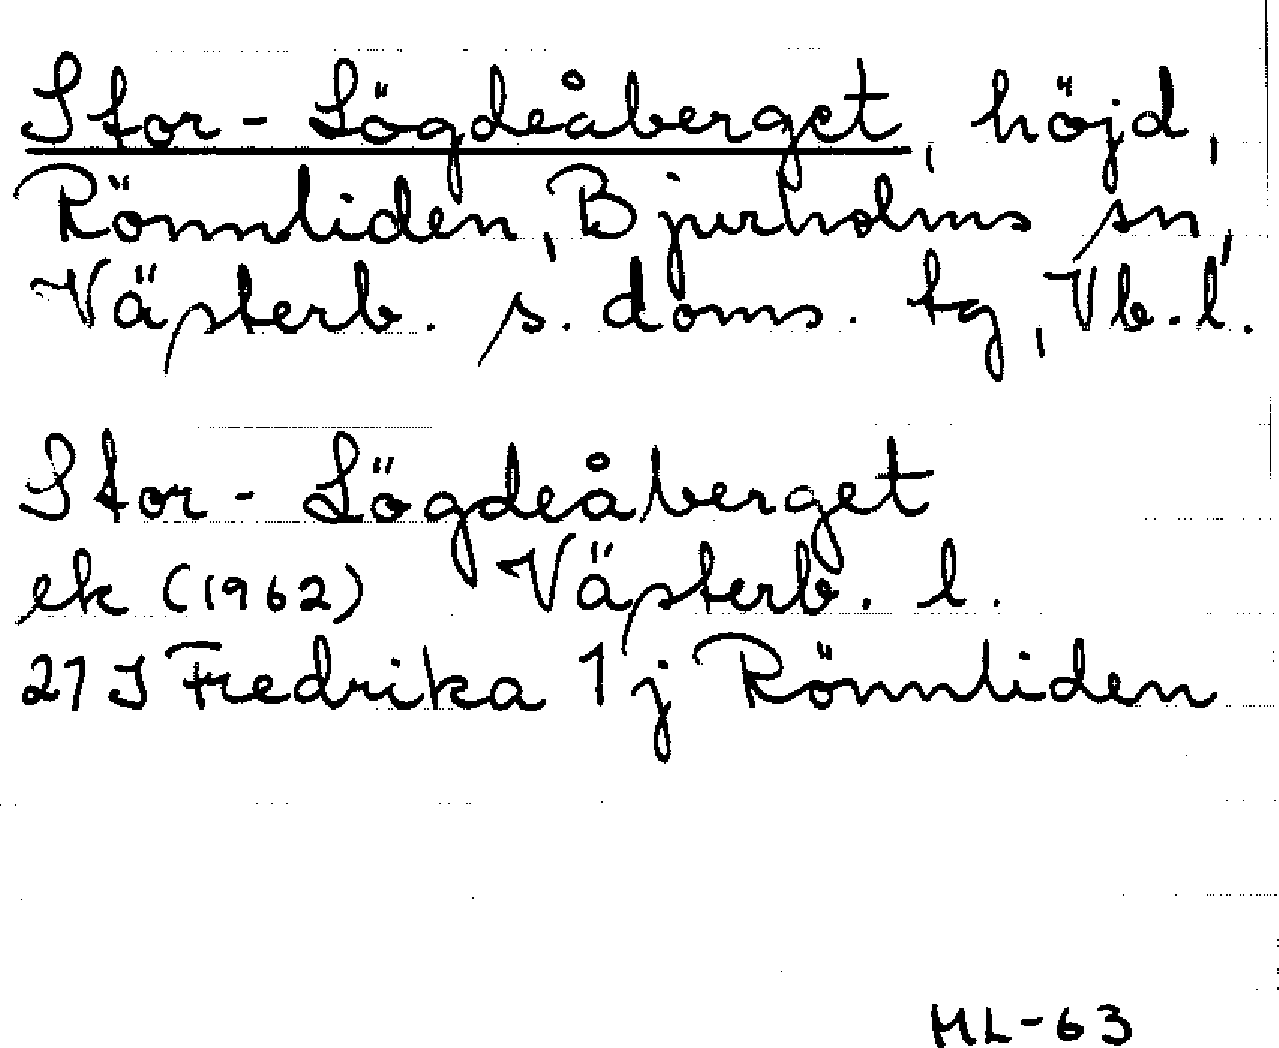 Stor-Lögdeåberget, höjd,
Rönnliden, Bjurholms sn,
Västerb. s. doms. tg, Vb.l.
Stor-Lögdeåberget
ek (1962) Västerb. l.
21 J Fredrika 1 j Rönnliden
ML-63